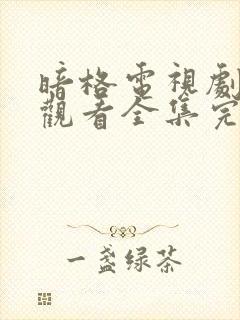 暗格電視劇
觀看全集完
一盏绿茶